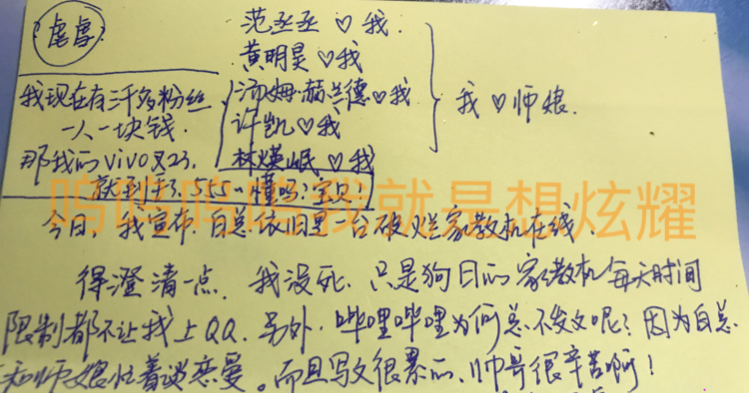 虐虐
范丞丞♡我.
黄明昊♡我
汤姆·赫兰德♡我
许凯♡我
林煐岷♡我
我♡师娘.
我现在有三千多粉丝
一人一块钱.
那我的vivo X23.
就到手了.555~懂吗?宝贝
呜呜呜呜我就是想炫耀
今日,我宣布,白总依旧是一台破烂家教机在线.
得澄清一点.我没死.只是狗日的家教机每天时间
限制都不让我上QQ.另外,哔哩哔哩为何总不发文呢?因为白总
和师娘忙着谈恋爱。而且写文很累的、帅哥很辛苦啊!